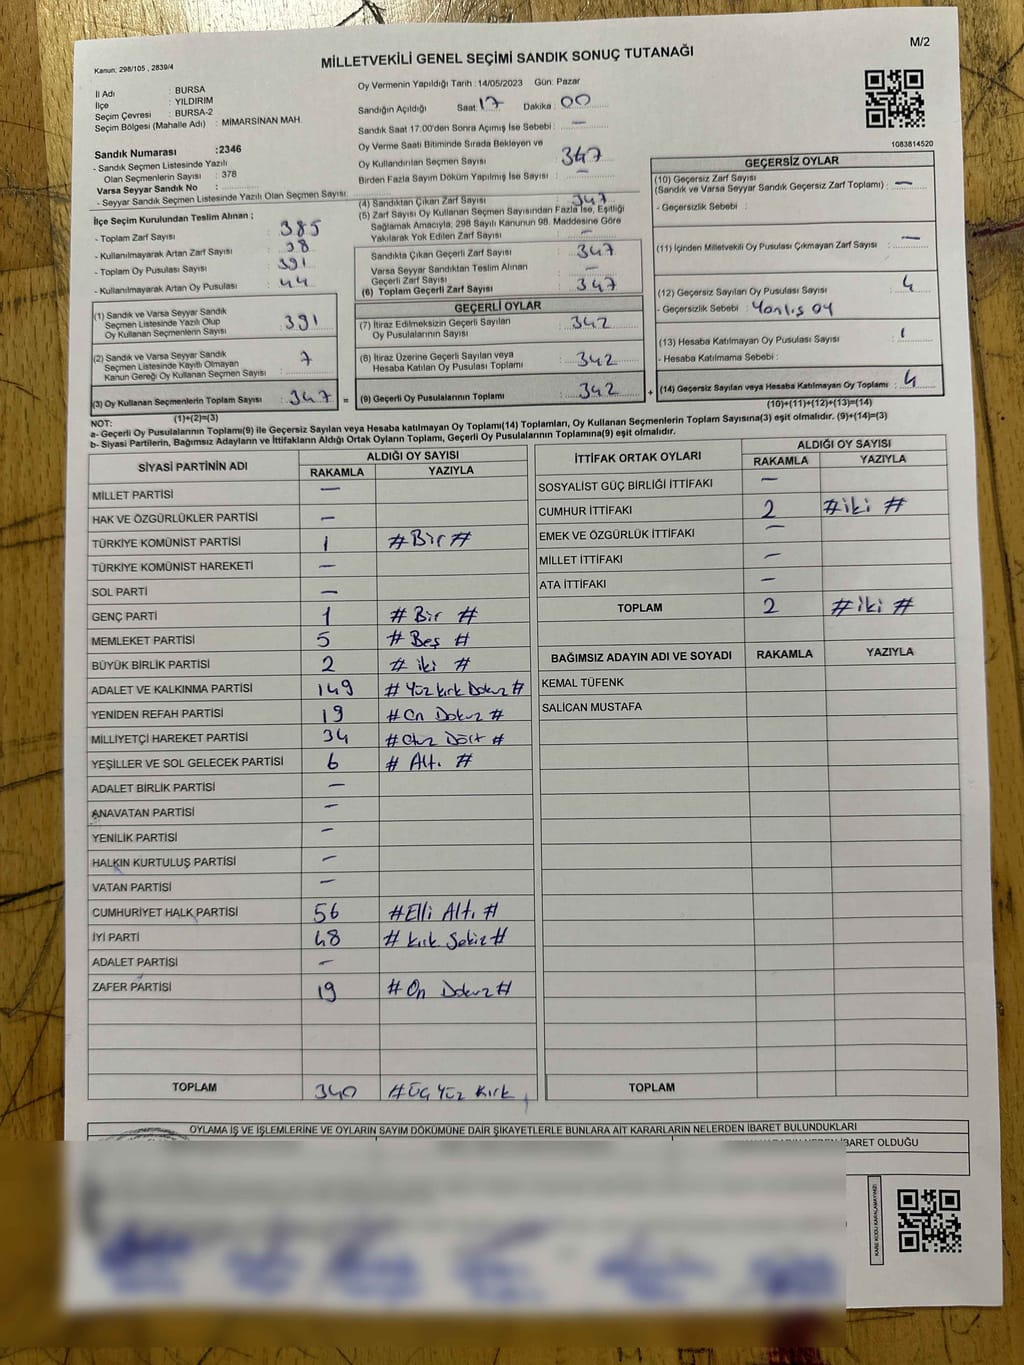 M/2
Kanun: 298/105 , 2839/4
MİLLETVEKİLİ GENEL SEÇİMİ SANDIK SONUÇ TUTANAĞI
İl Adı : BURSA
İlçe : YILDIRIM
Seçim Çevresi : BURSA-2
Seçim Bölgesi (Mahalle Adı) : MİMARSİNAN MAH.
Sandık Numarası :2346
- Sandık Seçmen Listesinde Yazılı
Olan Seçmenlerin Sayısı : 378
Varsa Seyyar Sandık No :
- Seyyar Sandık Seçmen Listesinde Yazılı Olan Seçmen Sayısı:
İlçe Seçim Kurulundan Teslim Alınan ;
- Toplam Zarf Sayısı : 385
- Kullanılmayarak Artan Zarf Sayısı : 38
- Toplam Oy Pusulası Sayısı : 391
- Kullanılmayarak Artan Oy Pusulası : 44
(1) Sandık ve Varsa Seyyar Sandık
Seçmen Listesinde Yazılı Olup
Oy Kullanan Seçmenlerin Sayısı : 391
(2) Sandık ve Varsa Seyyar Sandık
Seçmen Listesinde Kayıtlı Olmayan
Kanun Gereği Oy Kullanan Seçmen Sayısı : 7
(3) Oy Kullanan Seçmenlerin Toplam Sayısı : 347 =
(1)+(2)=(3)
Oy Vermenin Yapıldığı Tarih : 14/05/2023 Gün: Pazar
Sandığın Açıldığı Saat : 17 Dakika : 00
Sandık Saat 17:00'den Sonra Açımış İse Sebebi : —
Oy Verme Saati Bitiminde Sırada Bekleyen ve
Oy Kullandırılan Seçmen Sayısı : 347
Birden Fazla Sayım Döküm Yapılmış İse Sayısı : —
(4) Sandıktan Çıkan Zarf Sayısı : 347
(5) Zarf Sayısı Oy Kullanan Seçmen Sayısından Fazla İse, Eşitliği
Sağlamak Amacıyla, 298 Sayılı Kanunun 98. Maddesine Göre
Yakılarak Yok Edilen Zarf Sayısı : —
Sandıkta Çıkan Geçerli Zarf Sayısı : 347
Varsa Seyyar Sandıktan Teslim Alınan
Geçerli Zarf Sayısı : —
(6) Toplam Geçerli Zarf Sayısı : 347
GEÇERLİ OYLAR
(7) İtiraz Edilmeksizin Geçerli Sayılan
Oy Pusulalarının Sayısı : 342
(8) İtiraz Üzerine Geçerli Sayılan veya
Hesaba Katılan Oy Pusulası Toplamı : 342
(9) Geçerli Oy Pusulalarının Toplamı : 342 +
1083814520
GEÇERSİZ OYLAR
(10) Geçersiz Zarf Sayısı
(Sandık ve Varsa Seyyar Sandık Geçersiz Zarf Toplamı) : —
- Geçersizlik Sebebi :
(11) İçinden Milletvekili Oy Pusulası Çıkmayan Zarf Sayısı : —
(12) Geçersiz Sayılan Oy Pusulası Sayısı : 4
- Geçersizlik Sebebi : Yanlış oy
(13) Hesaba Katılmayan Oy Pusulası Sayısı : 1
- Hesaba Katılmama Sebebi :
(14) Geçersiz Sayılan veya Hesaba Katılmayan Oy Toplamı : 4
(10)+(11)+(12)+(13)=(14)
NOT:
a- Geçerli Oy Pusulalarının Toplamı(9) ile Geçersiz Sayılan veya Hesaba katılmayan Oy Toplamı(14) Toplamları, Oy Kullanan Seçmenlerin Toplam Sayısına(3) eşit olmalıdır. (9)+(14)=(3)
b- Siyasi Partilerin, Bağımsız Adayların ve İttifakların Aldığı Ortak Oyların Toplamı, Geçerli Oy Pusulalarının Toplamına(9) eşit olmalıdır.
SİYASİ PARTİNİN ADI ALDIĞI OY SAYISI
RAKAMLA YAZIYLA
MİLLET PARTİSİ —
HAK VE ÖZGÜRLÜKLER PARTİSİ —
TÜRKİYE KOMÜNİST PARTİSİ 1 # Bir #
TÜRKİYE KOMÜNİST HAREKETİ —
SOL PARTİ —
GENÇ PARTİ 1 # Bir #
MEMLEKET PARTİSİ 5 # Beş #
BÜYÜK BİRLİK PARTİSİ 2 # iki #
ADALET VE KALKINMA PARTİSİ 149 # Yüz kırk Dokuz #
YENİDEN REFAH PARTİSİ 19 # On Dokuz #
MİLLİYETÇİ HAREKET PARTİSİ 34 # Otuz Dört #
YEŞİLLER VE SOL GELECEK PARTİSİ 6 # Altı #
ADALET BİRLİK PARTİSİ —
ANAVATAN PARTİSİ —
YENİLİK PARTİSİ —
HALKIN KURTULUŞ PARTİSİ —
VATAN PARTİSİ —
CUMHURİYET HALK PARTİSİ 56 # Elli Altı #
İYİ PARTİ 48 # kırk Sekiz #
ADALET PARTİSİ —
ZAFER PARTİSİ 19 # On Dokuz #
TOPLAM 340 # Üç Yüz Kırk
İTTİFAK ORTAK OYLARI ALDIĞI OY SAYISI
RAKAMLA YAZIYLA
SOSYALİST GÜÇ BİRLİĞİ İTTİFAKI —
CUMHUR İTTİFAKI 2 # iki #
EMEK VE ÖZGÜRLÜK İTTİFAKI —
MİLLET İTTİFAKI —
ATA İTTİFAKI —
TOPLAM 2 # iki #
BAĞIMSIZ ADAYIN ADI VE SOYADI RAKAMLA YAZIYLA
KEMAL TÜFENK
SALİCAN MUSTAFA
TOPLAM
OYLAMA İŞ VE İŞLEMLERİNE VE OYLARIN SAYIM DÖKÜMÜNE DAİR ŞİKAYETLERLE BUNLARA AİT KARARLARIN NELERDEN İBARET BULUNDUKLARI
İBARET OLDUĞU
KARE KODU KARALAMAYINIZ!